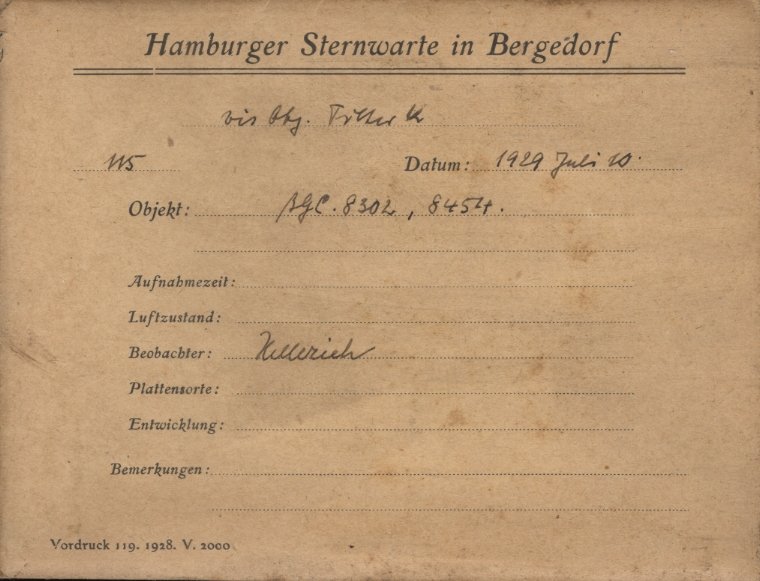 Hamburger Sternwarte in Bergedorf
vis Obj. Filter K
115 Datum: 1929 Juli 10.
Objekt: βGC. 8302, 8454.
Aufnahmezeit:
Luftzustand:
Beobachter: Hellerich
Plattensorte:
Entwicklung:
Bemerkungen:
Vordruck 119. 1928. V. 2000